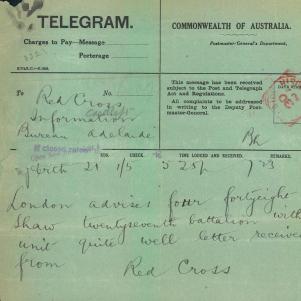 TELEGRAM.
COMMONWEALTH OF AUSTRALIA.
Charges to Pay—Message
Postmaster-General's Department.
Porterage
This message has been received subject to the Post and Telegraph Act and Regulations.
All complaints to be addressed in writing to the Deputy Postmaster-General
To
No.
Red Cross
Information
Bureau Adelaide
STATION FROM, WORDS, CHECK. TIME LODGED AND RECEIVED. REMARKS.
Perth 21 1/5 5 25p 7 23
London advises four fortyeight
Shaw twentyseventh battalion with
unit quite well letter received
from Red Cross